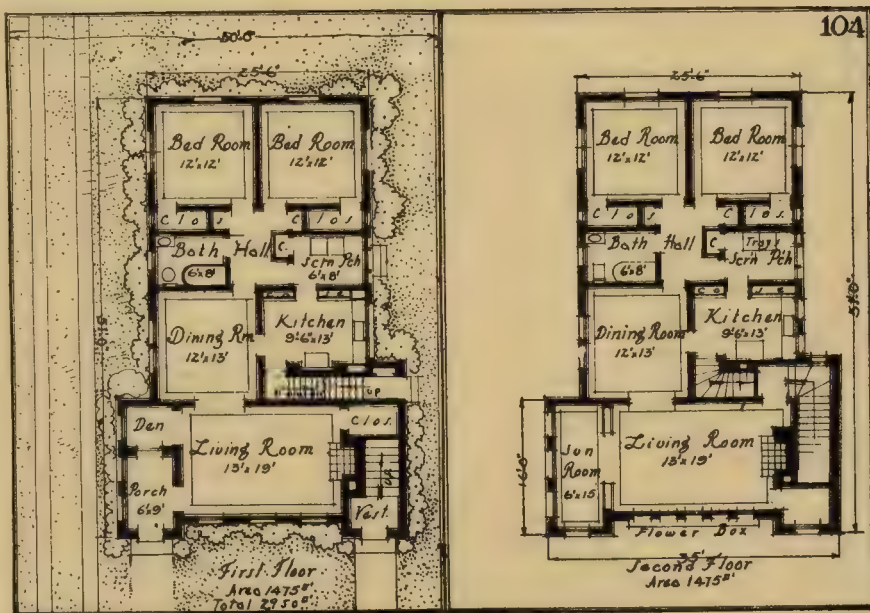 104
50'-0"
25'-6"
Bed Room
12'x12'
Bed Room
12'x12'
Clos
Clos.
C.
Bath
6'x8'
Hall
Scrn Pch
6'x8'
Dining Rm
12'x13'
Kitchen
9'-6"x13'
UP
Den
Living Room
13'x19'
Clos.
UP
Porch
6'x9'
Vest.
First Floor
Area 1475□'
Total 2950□'
25'-6"
Bed Room
12'x12'
Bed Room
12'x12'
Clos
Clos.
C
Bath
6'x8'
Hall
Trays
Scrn Pch
Dining Room
12'x13'
Kitchen
9'-6"x13'
16'-0"
Sun
Room
6'x15'
Living Room
13'x19'
Flower Box
35'
Second Floor
Area 1475□'